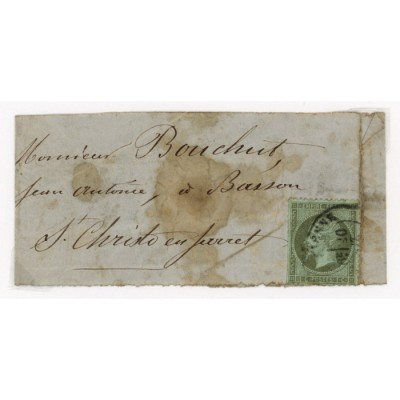 Monsieur Bouchut
jean antoine, à Basson
St Christo en jarret
EMPIRE FRANC